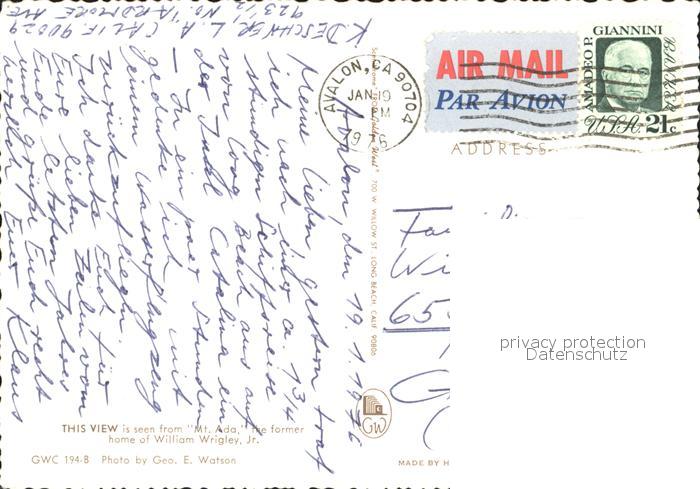 K. DESCHNER L.A. CALIF. 90029
923 1/2 N. ARDMORE AVE
Avalon, den 19.1.1976
Meine Lieben, gestern traf
ich nach einer ca. 1 3/4
stündigen Schiffsreise
von Long Beach aus auf
der Insel Catalina ein
– In ein paar Stunden
gedenke ich mit
einem Wasserflugzeug
zurückzufliegen.
Ich danke Euch für
Eure lieben Zeilen vom
Ende letzten Jahres
und grüße Euch recht
Euer Klaus
THIS VIEW is seen from "Mt. Ada," the former
home of William Wrigley, Jr.
GWC 194-B Photo by Geo. E. Watson
700 W. WILLOW ST., LONG BEACH, CALIF. 90806
GW
MADE BY H
AVALON, CA 90704
JAN 19
PM
1976
AIR MAIL
PAR AVION
AMADEO P. GIANNINI
BANKER
USA 21c
ADDRESS
Wi
65
privacy protection
Datenschutz